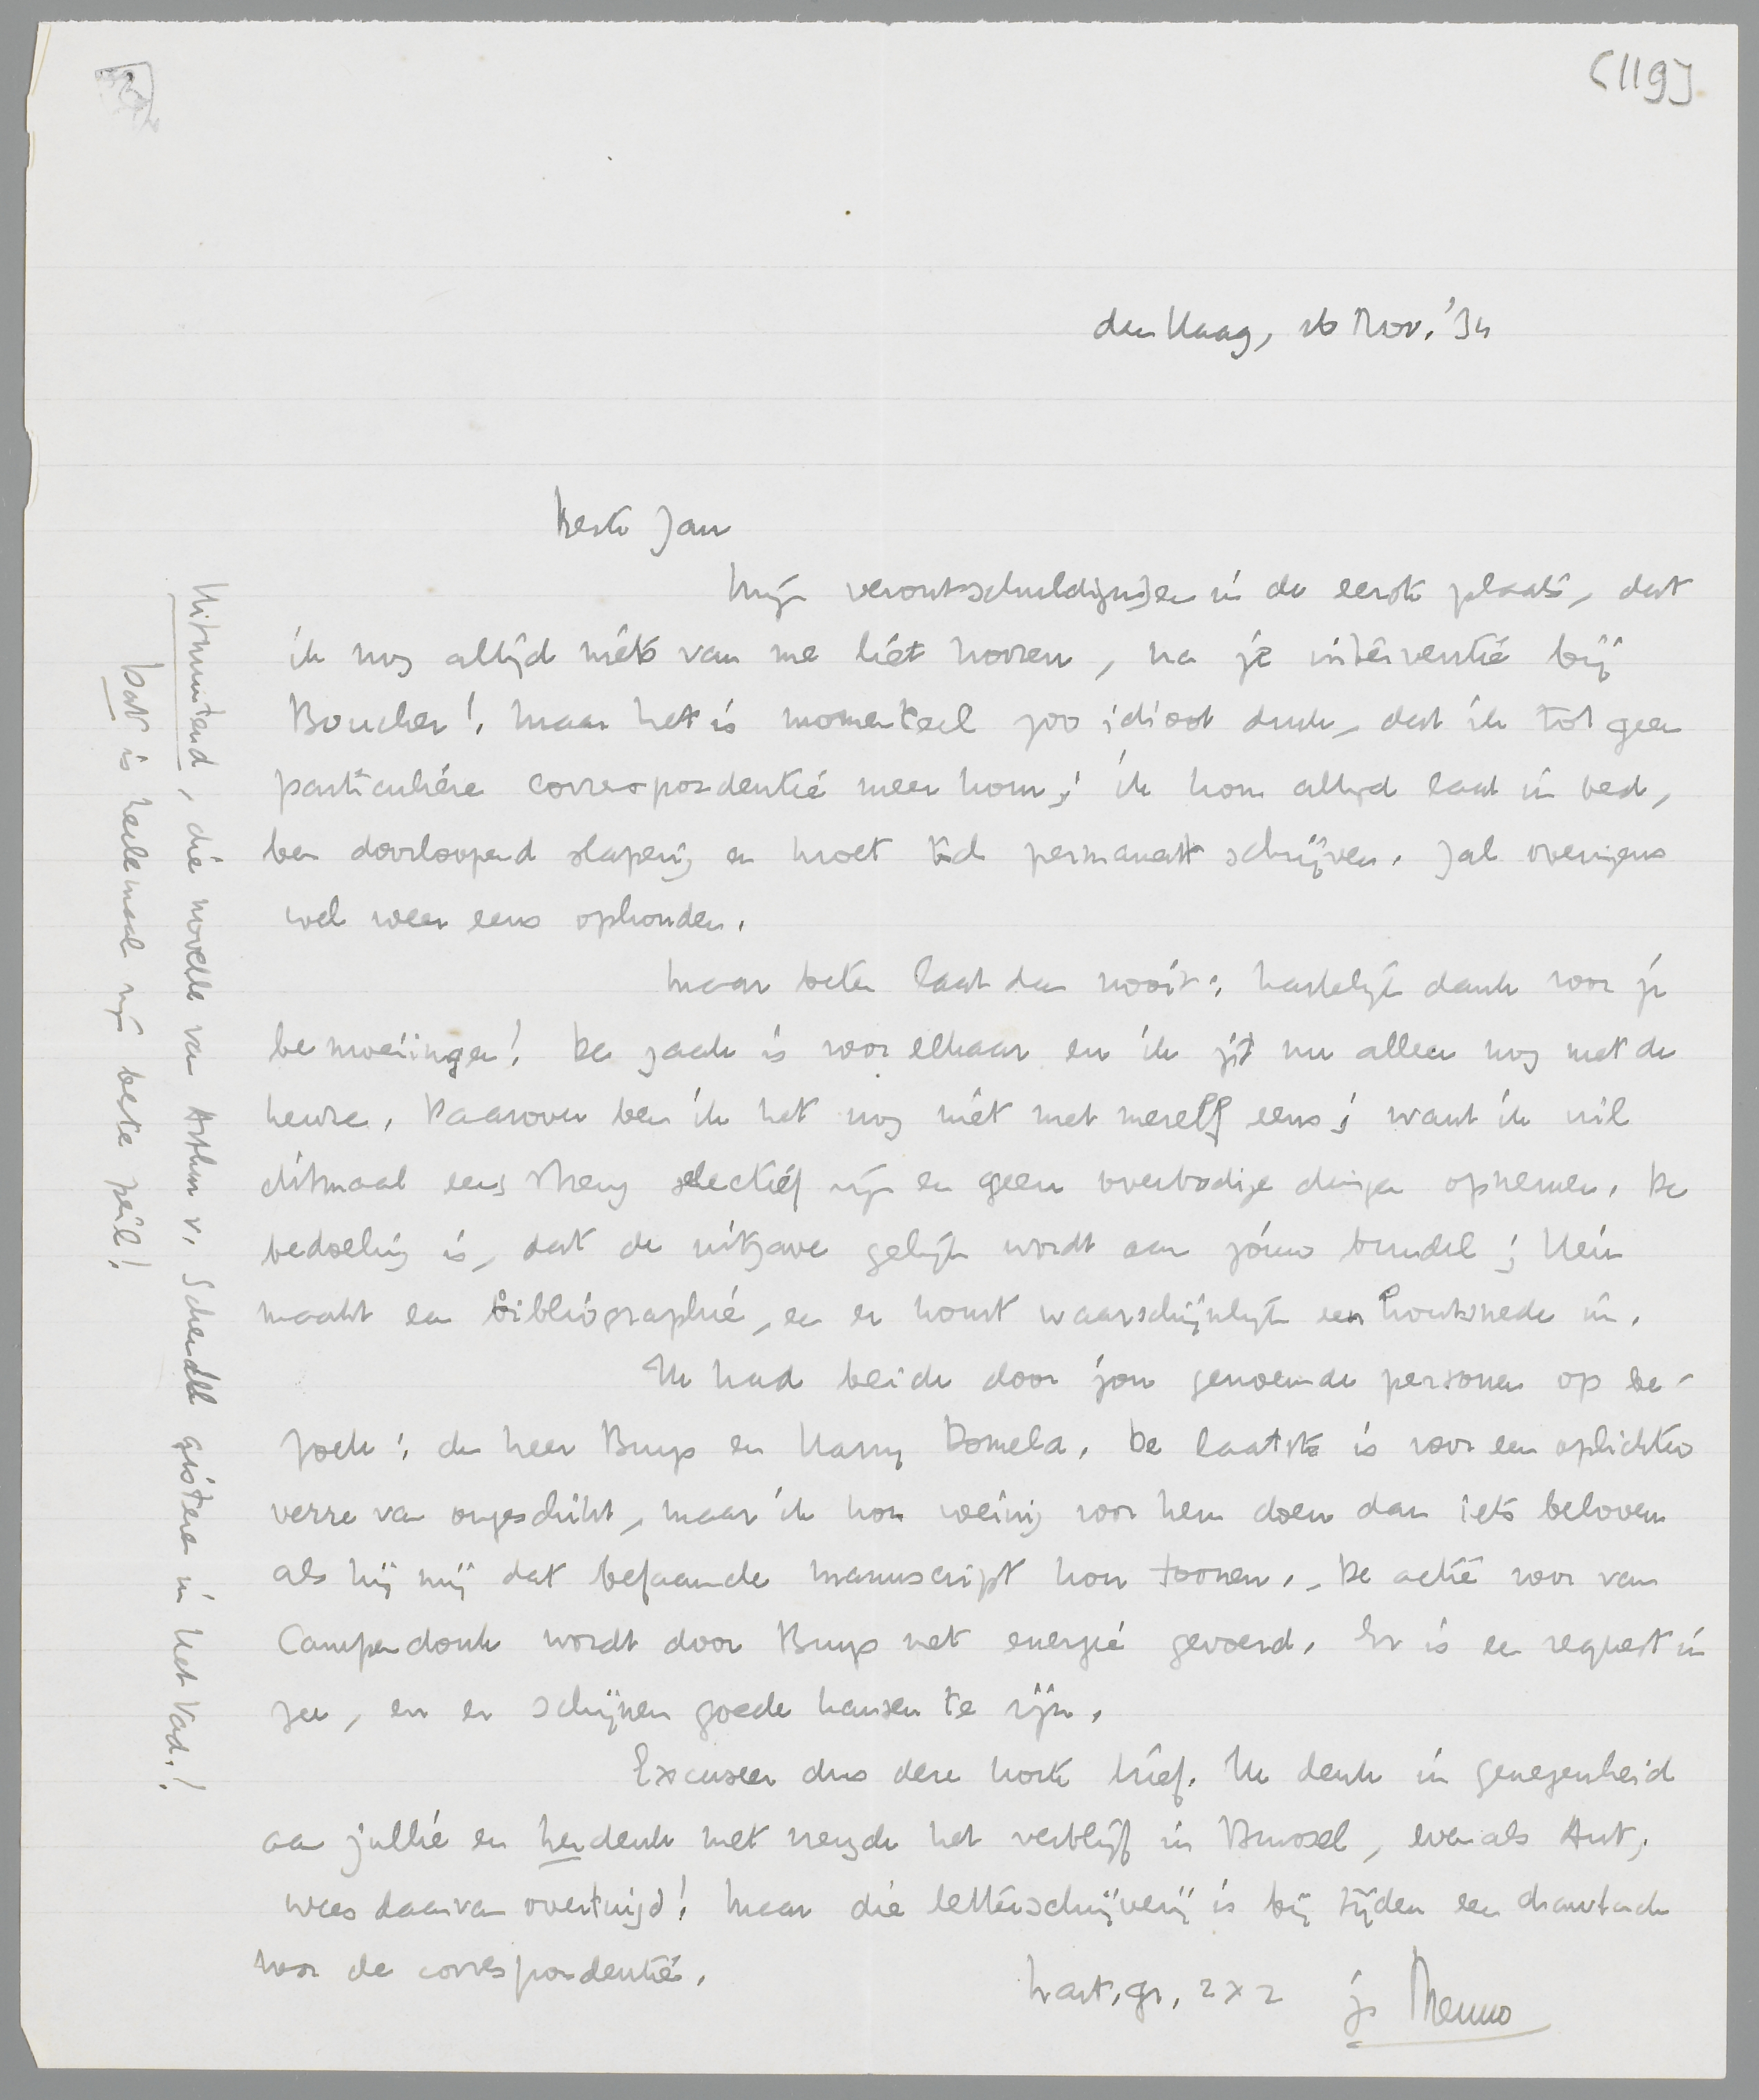 [119]
den Haag, 26 Nov. '34
Beste Jan
Mijn verontschuldigingen in de eerste plaats, dat
ik nog altijd niets van me liet hooren, na je interventie bij
Boucher! Maar het is momenteel zoo idioot druk, dat ik tot geen
particuliere correspondentie meer kom; ik kom altijd laat in bed,
ben doorloopend slaperig en moet toch permanent schrijven. Zal overigens
wel weer eens ophouden.
Maar beter laat dan nooit: hartelijk dank voor je
bemoeiingen! De zaak is voor elkaar en ik zit nu alleen nog met de
keuze. Daarover ben ik het nog niet met mezelf eens; want ik wil
ditmaal eens streng selectief zijn en geen overbodige dingen opnemen. De
bedoeling is, dat de uitgave gelijk wordt aan jóuw bundel; Hein
maakt een bibliographie, en er komt waarschijnlijk een houtsnede in.
Ik had beide door jou genoemde personen op be-
zoek: de heer Buys en Harry Domela. De laatste is voor een oplichter
verre van ongeschikt, maar ik kon weinig voor hem doen dan iets beloven
als hij mij dat befaamde manuscript kon toonen. - De actie voor van
Campendonk wordt door Buys met energie gevoerd. Er is een request in
zee, en er schijnen goede kansen te zijn.
Excuseer dus deze korte brief. Ik denk in genegenheid
aan jullie en herdenk met vreugde het verblijf in Brussel, evenals Ant;
wees daarvan overtuigd! Maar die letterschrijverij is bij tijden een
voor de correspondentie.
hart. gr. 2 x 2 je Menno
Uitmuntend, die novelle van Arthur v. Schendel gisteren in Het Vad.!
Dat is heelemaal zijn beste peil!